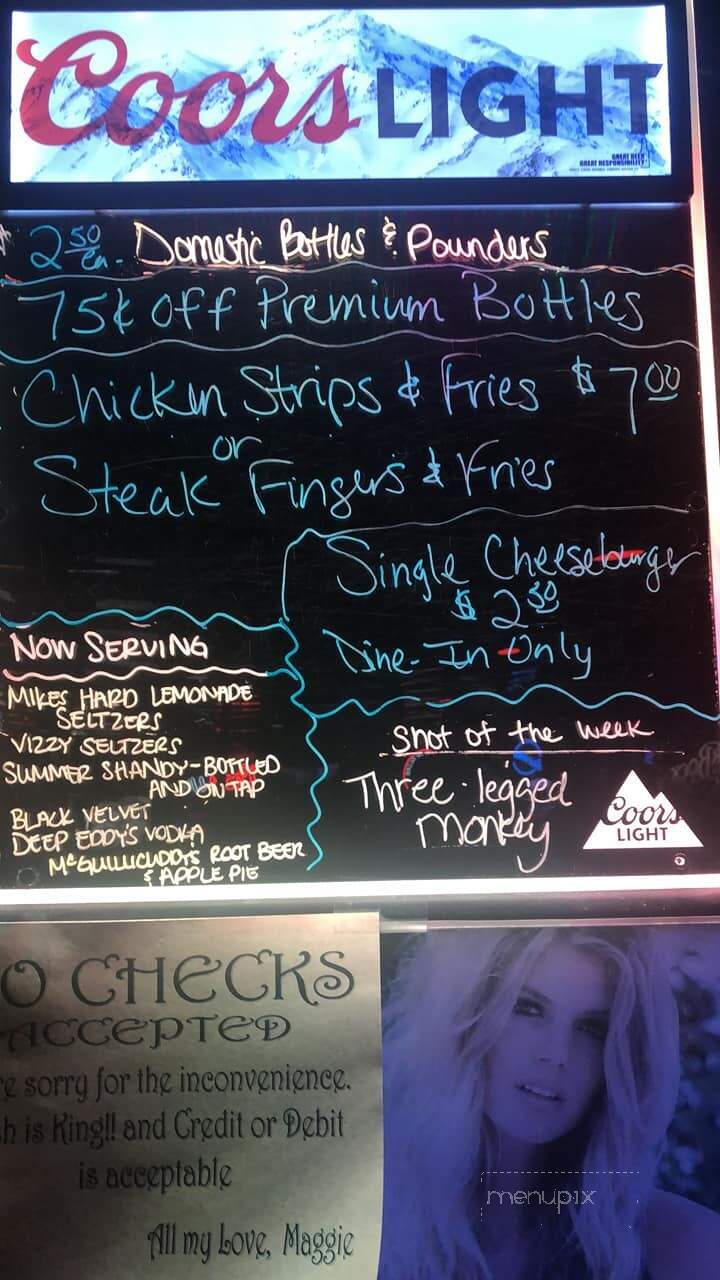 Coors LIGHT
GREAT BEER
GREAT RESPONSIBILITY
2 50 ea. Domestic Bottles & Pounders
75¢ off Premium Bottles
Chicken Strips & Fries $7 00
or
Steak Fingers & Fries
Single Cheeseburger
$2 50
Dine-In Only
NOW SERVING
MIKES HARD LEMONADE
SELTZERS
VIZZY SELTZERS
SUMMER SHANDY-BOTTLED
AND ON TAP
BLACK VELVET
DEEP EDDY'S VODKA
McGUILLICUDDY'S ROOT BEER
& APPLE PIE
Shot of the week
Three-legged
Monkey
Coors
LIGHT
O CHECKS
ACCEPTED
e sorry for the inconvenience.
h is King!! and Credit or Debit
is acceptable
All my Love, Maggie
menupix